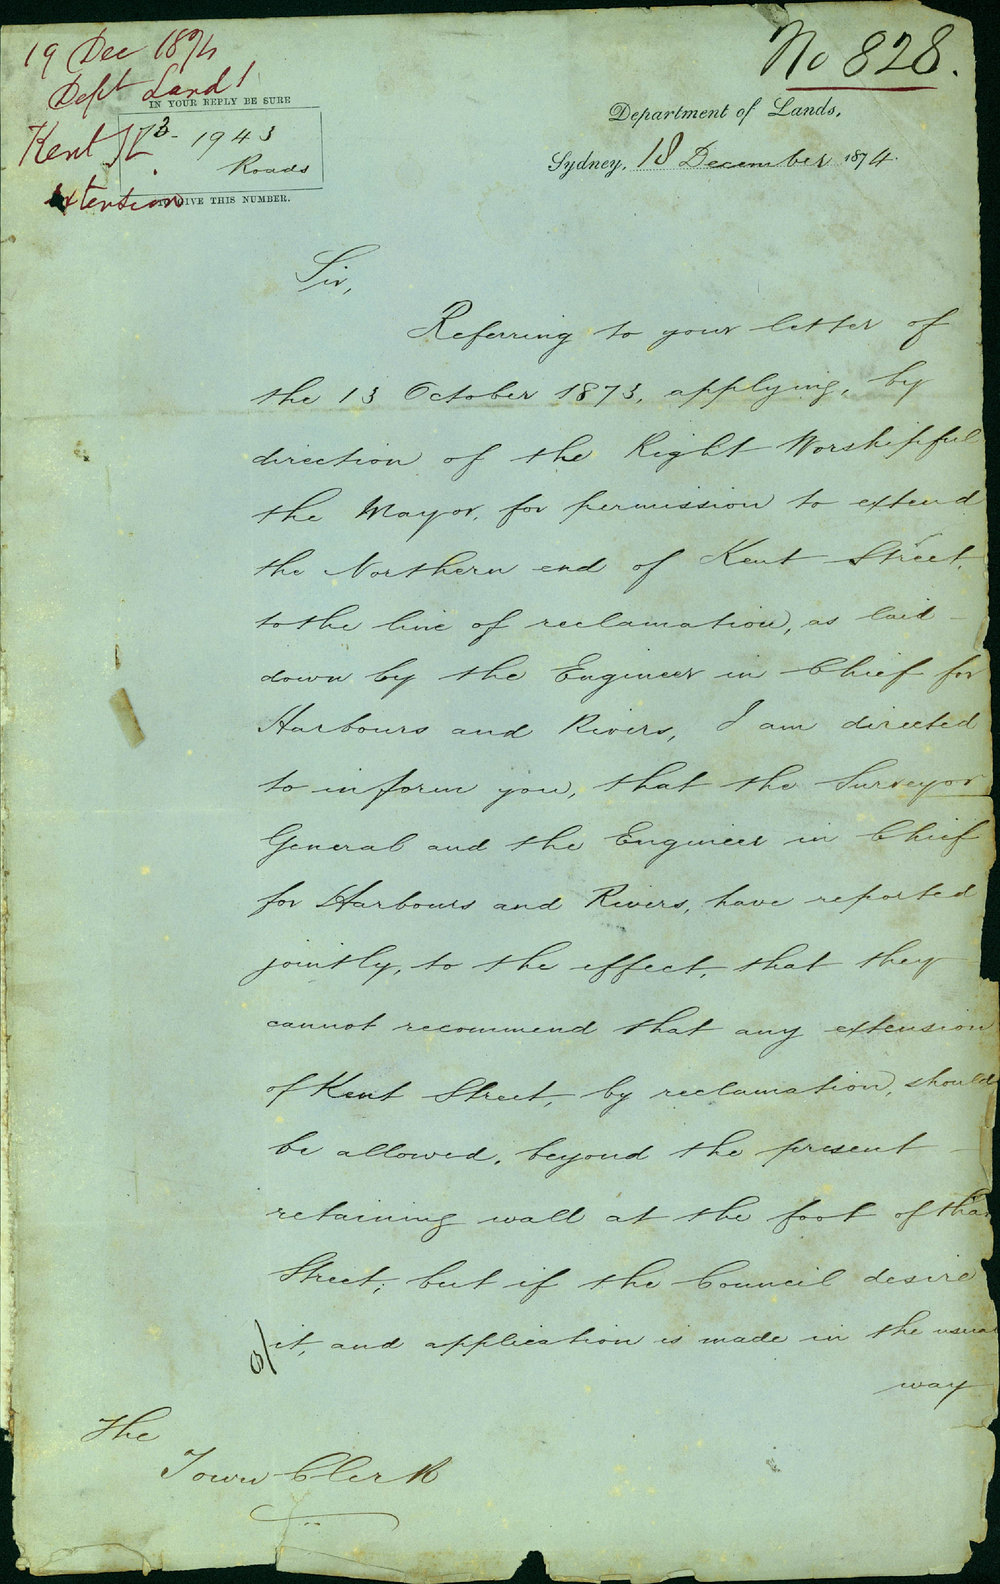 19 Dec 1874
Dept Land
No 828.
IN YOUR REPLY BE SURE
Department of Lands,
Kent St
73 - 1943
Roads
Sydney, 18 December 1874.
Extension
TO GIVE THIS NUMBER.
Sir,
Referring to your letter of
the 13 October 1873, applying, by
direction of the Right Worshipful
the Mayor, for permission to extend
the Northern end of Kent Street,
to the line of reclamation, as laid
down by the Engineer in Chief for
Harbours and Rivers, I am directed
to inform you, that the Surveyor
General and the Engineer in Chief
for Harbours and Rivers, have reported
jointly, to the effect, that they
cannot recommend that any extension
of Kent Street, by reclamation, should
be allowed, beyond the present
retaining wall at the foot of that
Street; but if the Council desire
it, and application is made in the usual
way
The
Town Clerk